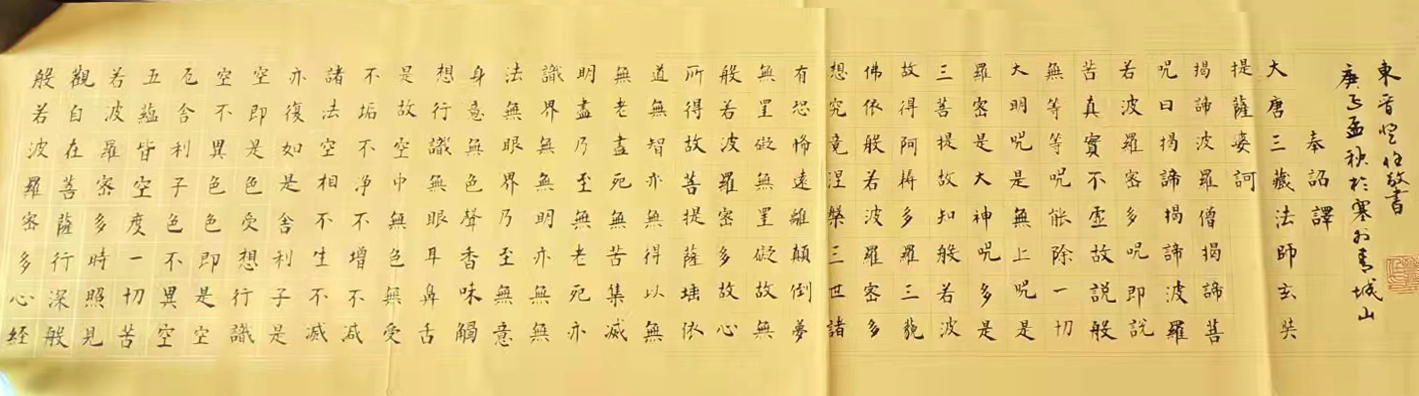 般若波羅密多心経
觀自在菩薩行深般
若波羅密多時照見
五蘊皆空度一切苦
厄舍利子色不異空
空不異色色即是空
空即是色受想行識
亦復如是舍利子是
諸法空相不生不滅
不垢不净不增不减
是故空中無色無受
想行識無眼耳鼻舌
身意無色聲香味觸
法無眼界乃至無意
識界無無明亦無無
明盡乃至無老死亦
無老盡死無苦集滅
道無智亦無得以無
所得故菩提薩埵依
般若波羅密多故心
無罣礙無罣礙故無
有恐怖遠離顛倒夢
想究竟涅槃三世諸
佛依般若波羅密多
故得阿耨多羅三藐
三菩提故知般若波
羅密是大神呪多是
大明呪是無上呪是
無等等呪能除一切
苦真實不虛故說般
若波羅密多呪即說
呪曰揭諦揭諦波羅
揭諦波羅僧揭諦菩
提薩婆訶
大唐三藏法師玄奘
奉詔譯
庚子孟秋於塞外青城山
東晋 書